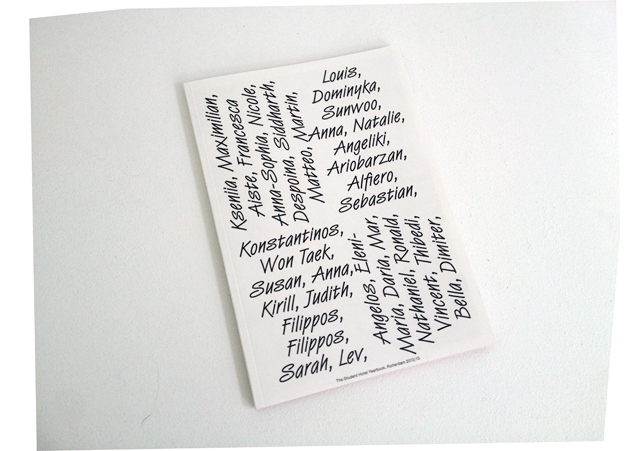 Kseniia, Maximilian,
Aiste, Francesca
Anna-Sophia, Nicole,
Despoina, Siddharth,
Matteo, Martin,
Louis,
Dominyka,
Sunwoo,
Anna, Natalie,
Angeliki,
Ariobarzan,
Alfiero,
Sebastian,
Konstantinos,
Won Taek,
Susan, Anna,
Kirill, Judith,
Filippos,
Filippos,
Sarah, Lev,
Angelos, Eleni-
Maria, Daria, Mar,
Nathaniel, Ronald,
Vincent, Thibedi,
Bella, Dimiter,
The Student Hotel Yearbook, Rotterdam